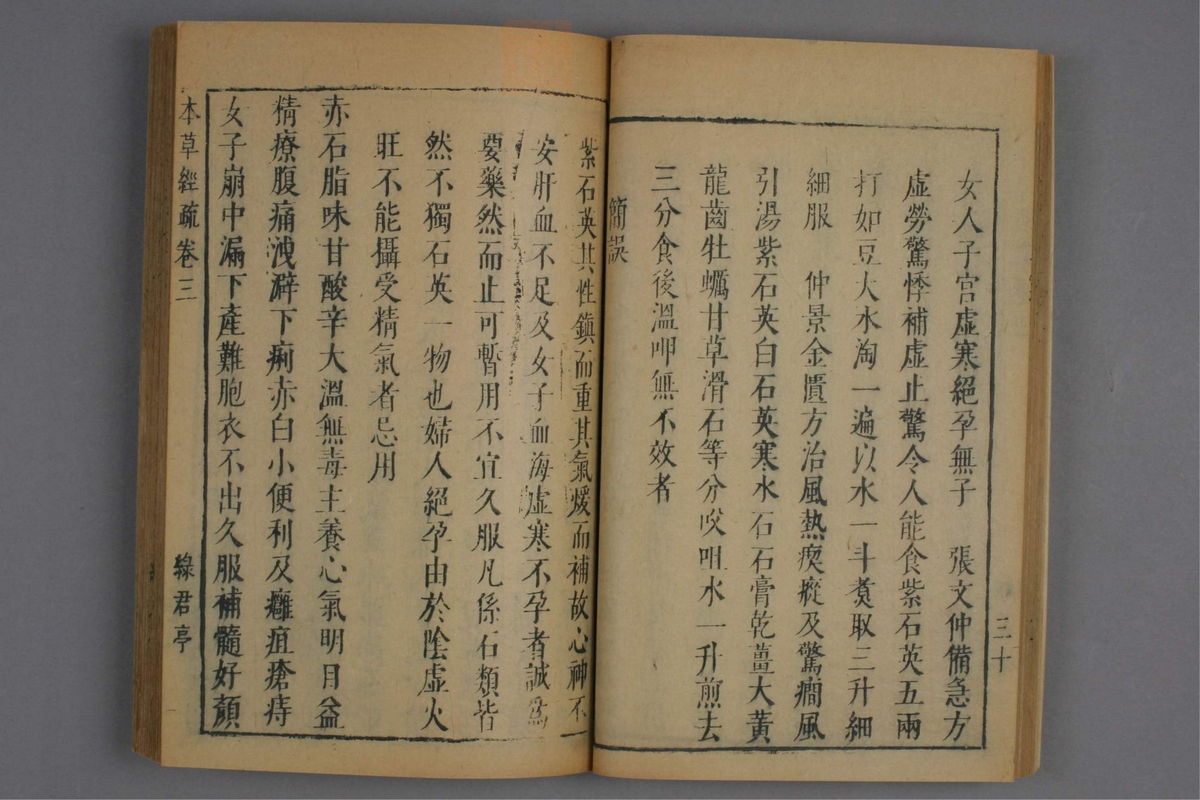 三十
女人子宮虛寒絕孕無子　張文仲備急方
虛勞驚悸補虛止驚令人能食紫石英五兩
打如豆大水淘一遍以水一斗煑取三升細
細服　仲景金匱方治風熱瘈瘲及驚癇風
引湯紫石英白石英寒水石石膏乾薑大黃
龍齒牡蠣甘草滑石等分㕮咀水一升煎去
三分食後溫呷無不效者
簡誤
紫石英其性鎮而重其氣煖而補故心神不
安肝血不足及女子血海虛寒不孕者誠爲
要藥然而止可暫用不宜久服凡係石類皆
然不獨石英一物也婦人絕孕由於陰虛火
旺不能攝受精氣者忌用
赤石脂味甘酸辛大溫無毒主養心氣明目益
精療腹痛洩澼下痢赤白小便利及癰疽瘡痔
女子崩中漏下產難胞衣不出久服補髓好顏
本草經疏卷三
綠君亭